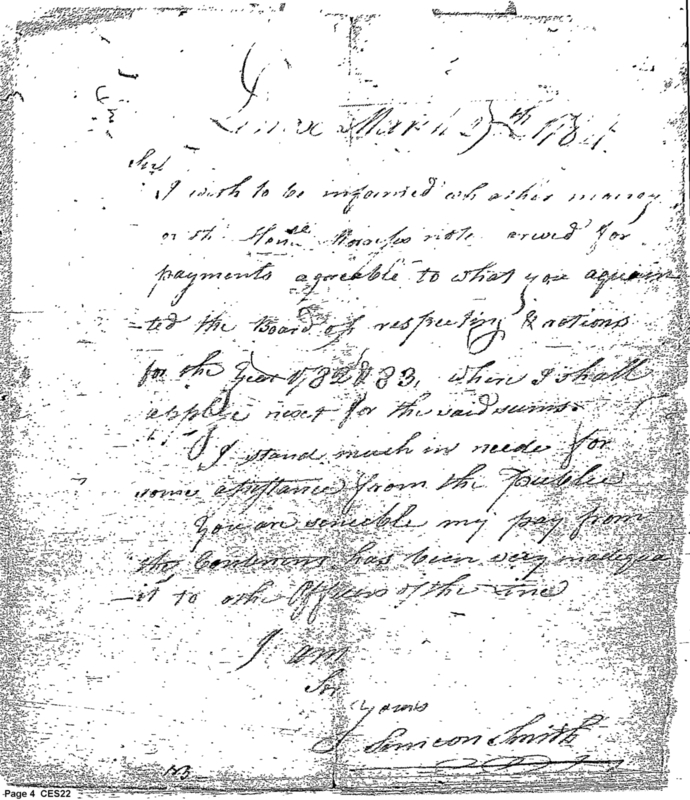 March 27th 1784.
Sir
I wish to be informed whether money
or the note for
payments agreable to what you aquain
-ted the Board of respecting Rations
for the Year 1,82 & 83, when I shall
applie next for the said sums.
I stand much in neede for
some assistance from the Publie
You are senceble my pay from
the has been very inadequa
-it to othe Officers of the Line
I am
Sir
yours
Simeon Smith
Page 4 CES22